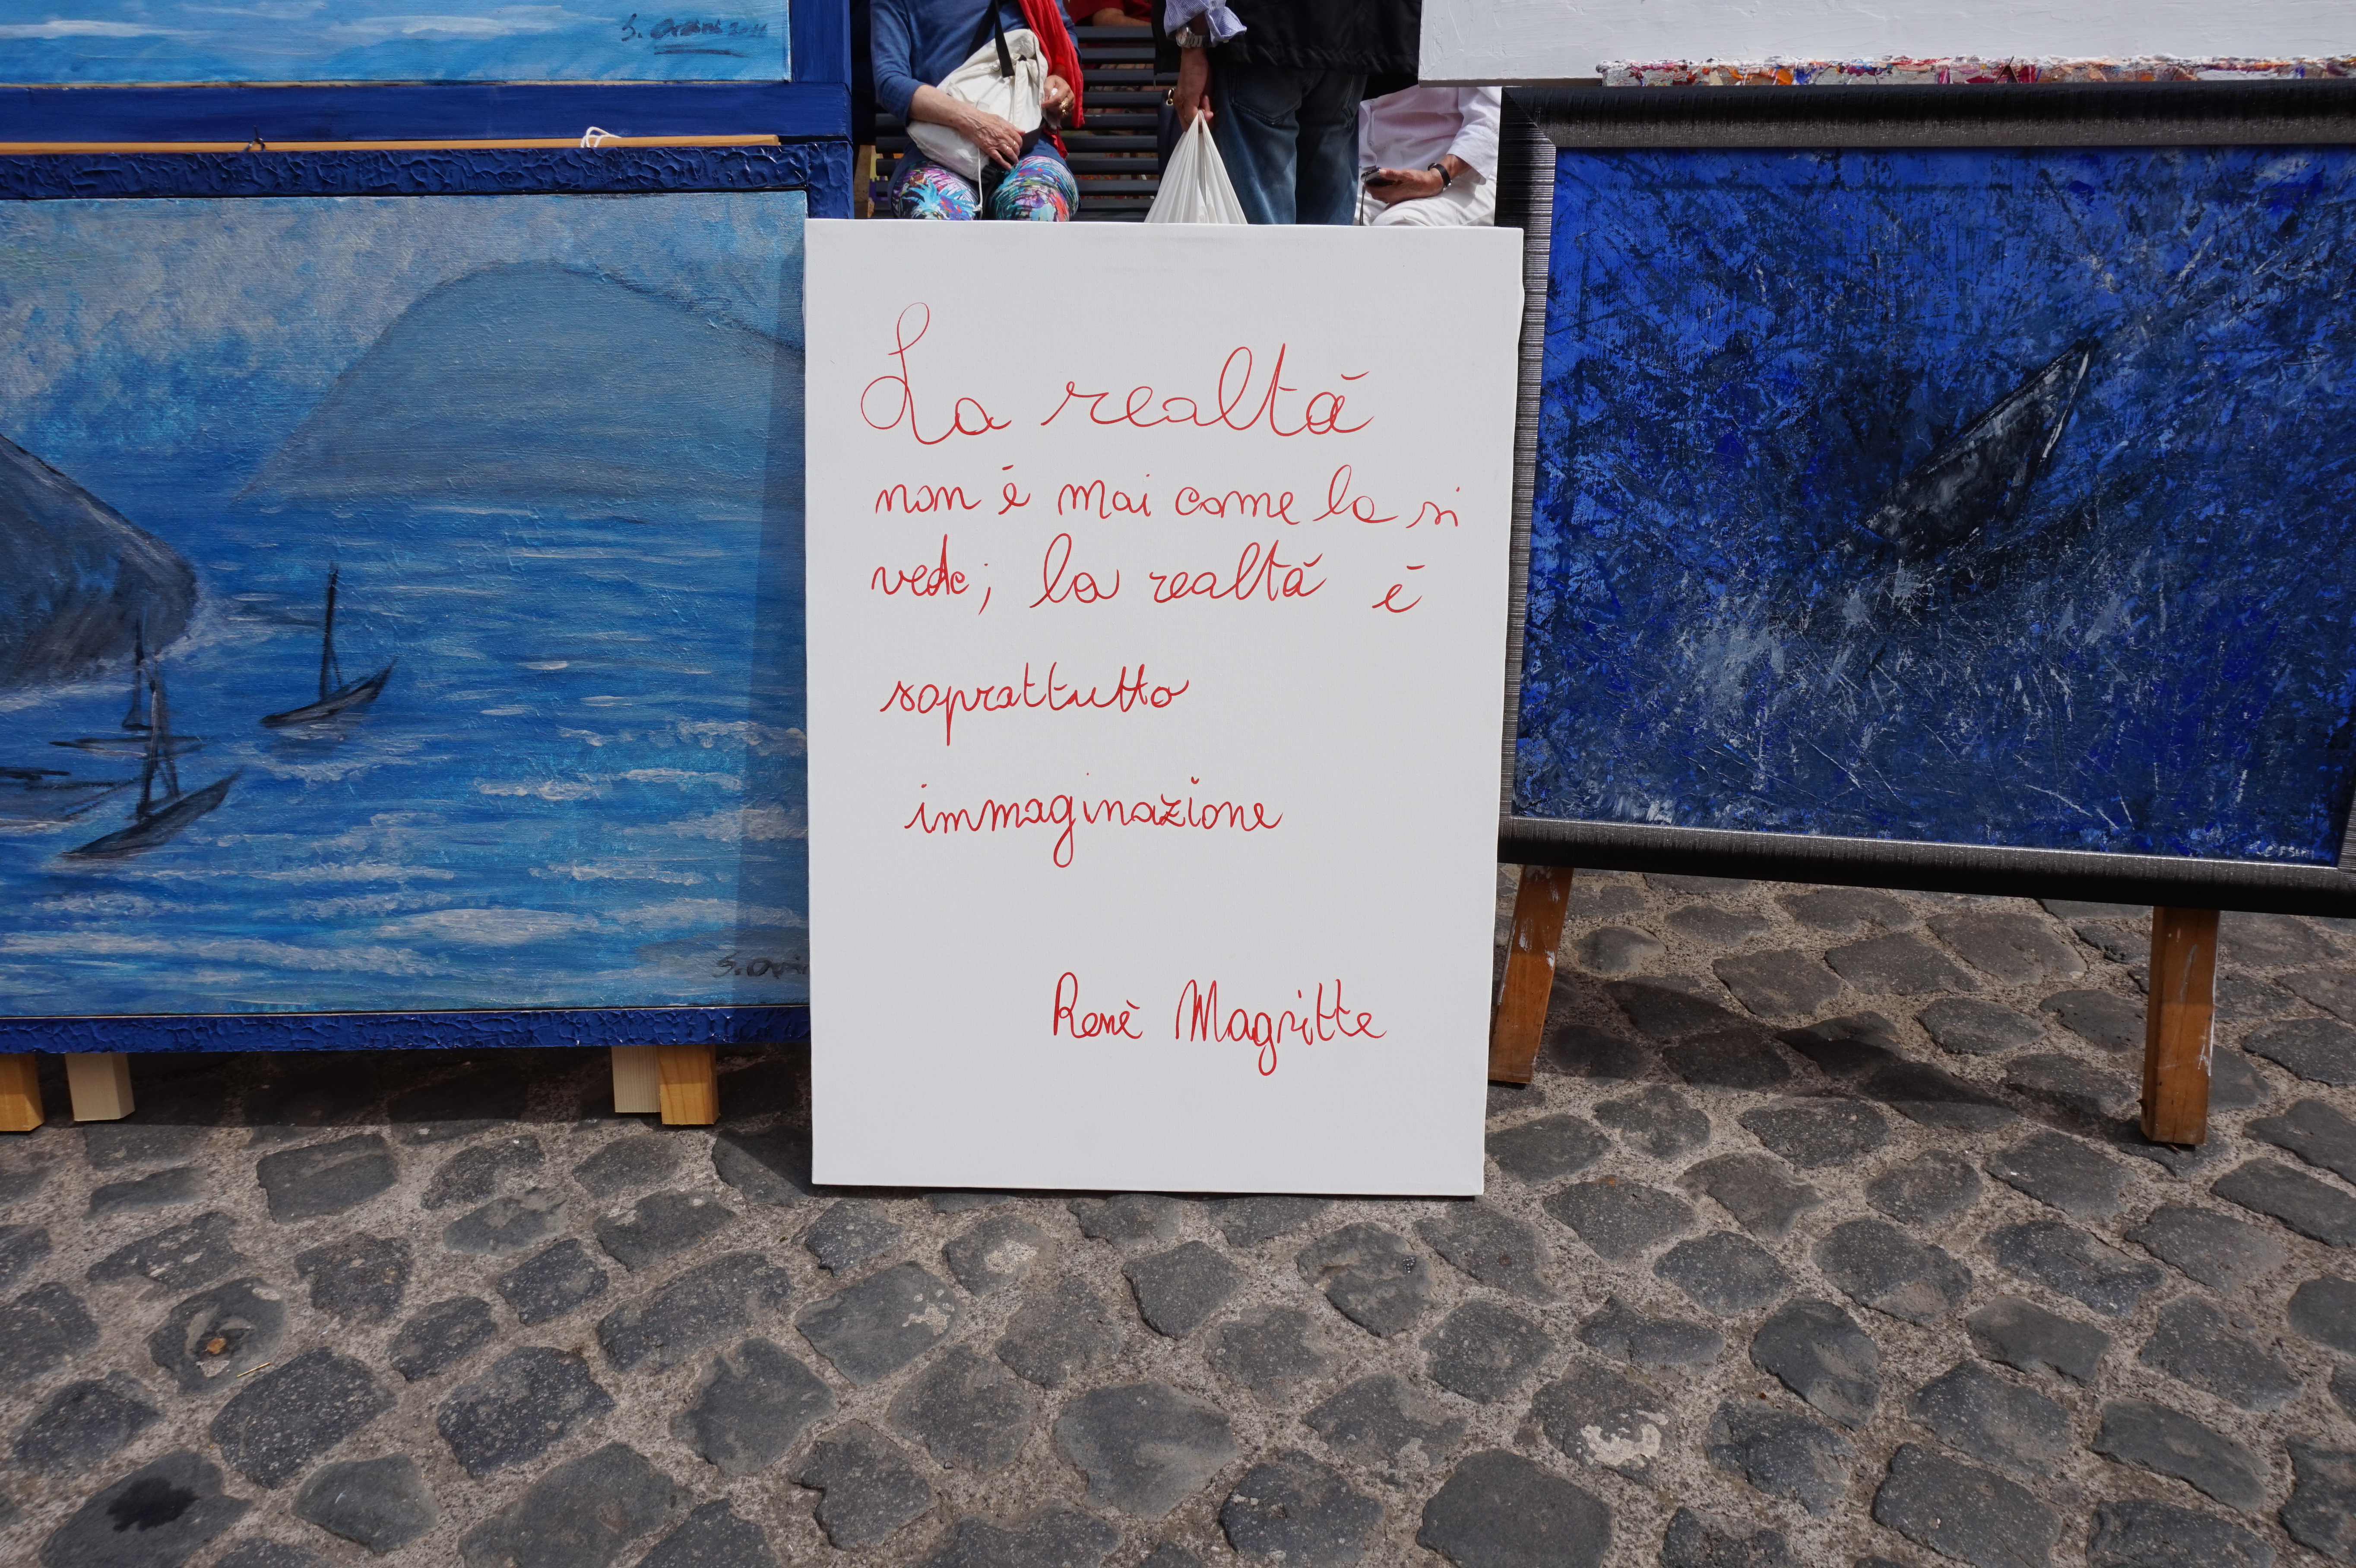 S. Orsini 2011
La realtà
non è mai come la si
vede; la realtà è
soprattutto
immaginazione
Renè Magritte
S. Orsini
Orsini